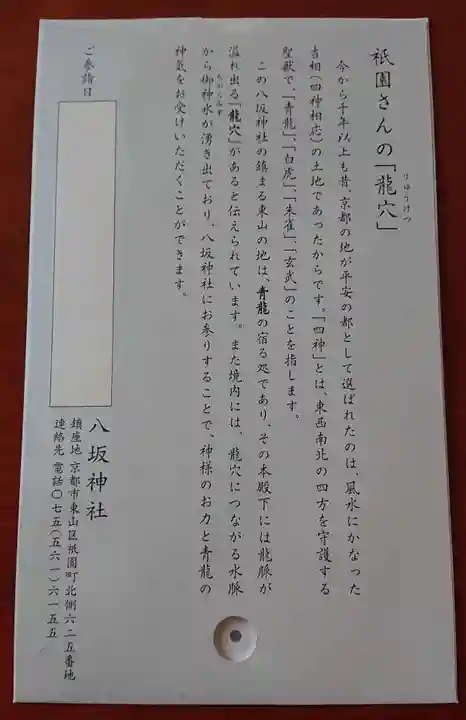 祇園さんの「龍穴」
りゅうけつ
今から千年以上も昔、京都の地が平安の都として選ばれたのは、風水にかなった
吉相(四神相応)の土地であったからです。「四神」とは、東西南北の四方を守護する
聖獣で、「青龍」、「白虎」、「朱雀」、「玄武」のことを指します。
この八坂神社の鎮まる東山の地は、青龍の宿る処であり、その本殿下には龍脈が
溢れ出る「龍穴」があると伝えられています。また境内には、龍穴につながる水脈
から御神水が湧き出ており、八坂神社にお参りすることで、神様のお力と青龍の
神気をお受けいただくことができます。
ご参詣日
八坂神社
鎮座地 京都市東山区祇園町北側六二五番地
連絡先 電話〇七五(五六一)六一五五